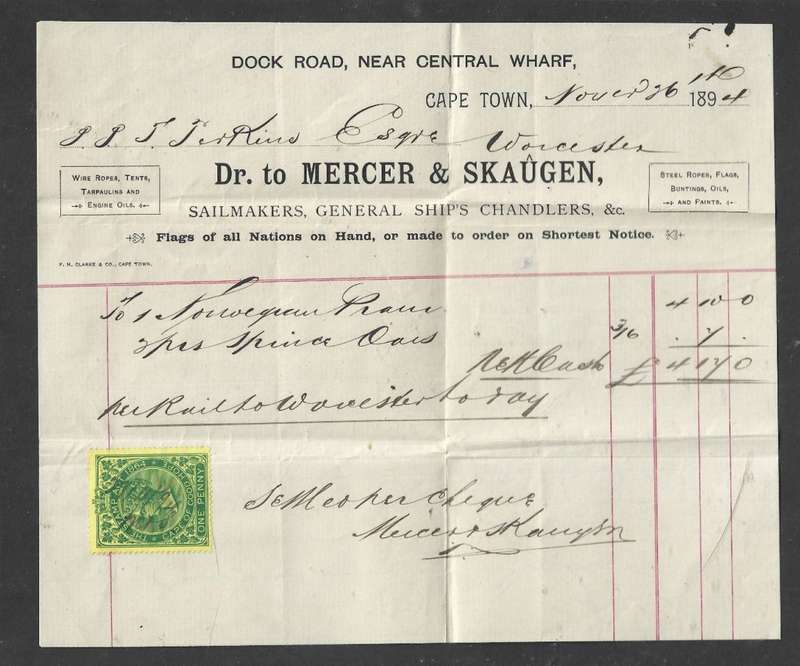 DOCK ROAD, NEAR CENTRAL WHARF,
CAPE TOWN, Novr 26 1894
P. P. T. Perkins Esqre Worcester
Dr. to MERCER & SKAÛGEN,
WIRE ROPES, TENTS,
TARPAULINS AND
ENGINE OILS.
STEEL ROPES, FLAGS,
BUNTINGS, OILS,
AND PAINTS.
SAILMAKERS, GENERAL SHIP'S CHANDLERS, &c.
Flags of all Nations on Hand, or made to order on Shortest Notice.
F. H. CLARKE & CO., CAPE TOWN.
To 1 Norwegian Pram 4 10 0
2 prs Spruce Oars 3/6 . 7 .
Nett Cash £ 4 17 0
per Rail to Worcester to day
STAMP ACT 1864
CAPE OF GOOD HOPE
ONE PENNY
Settled per cheque
Mercer & Skaugen